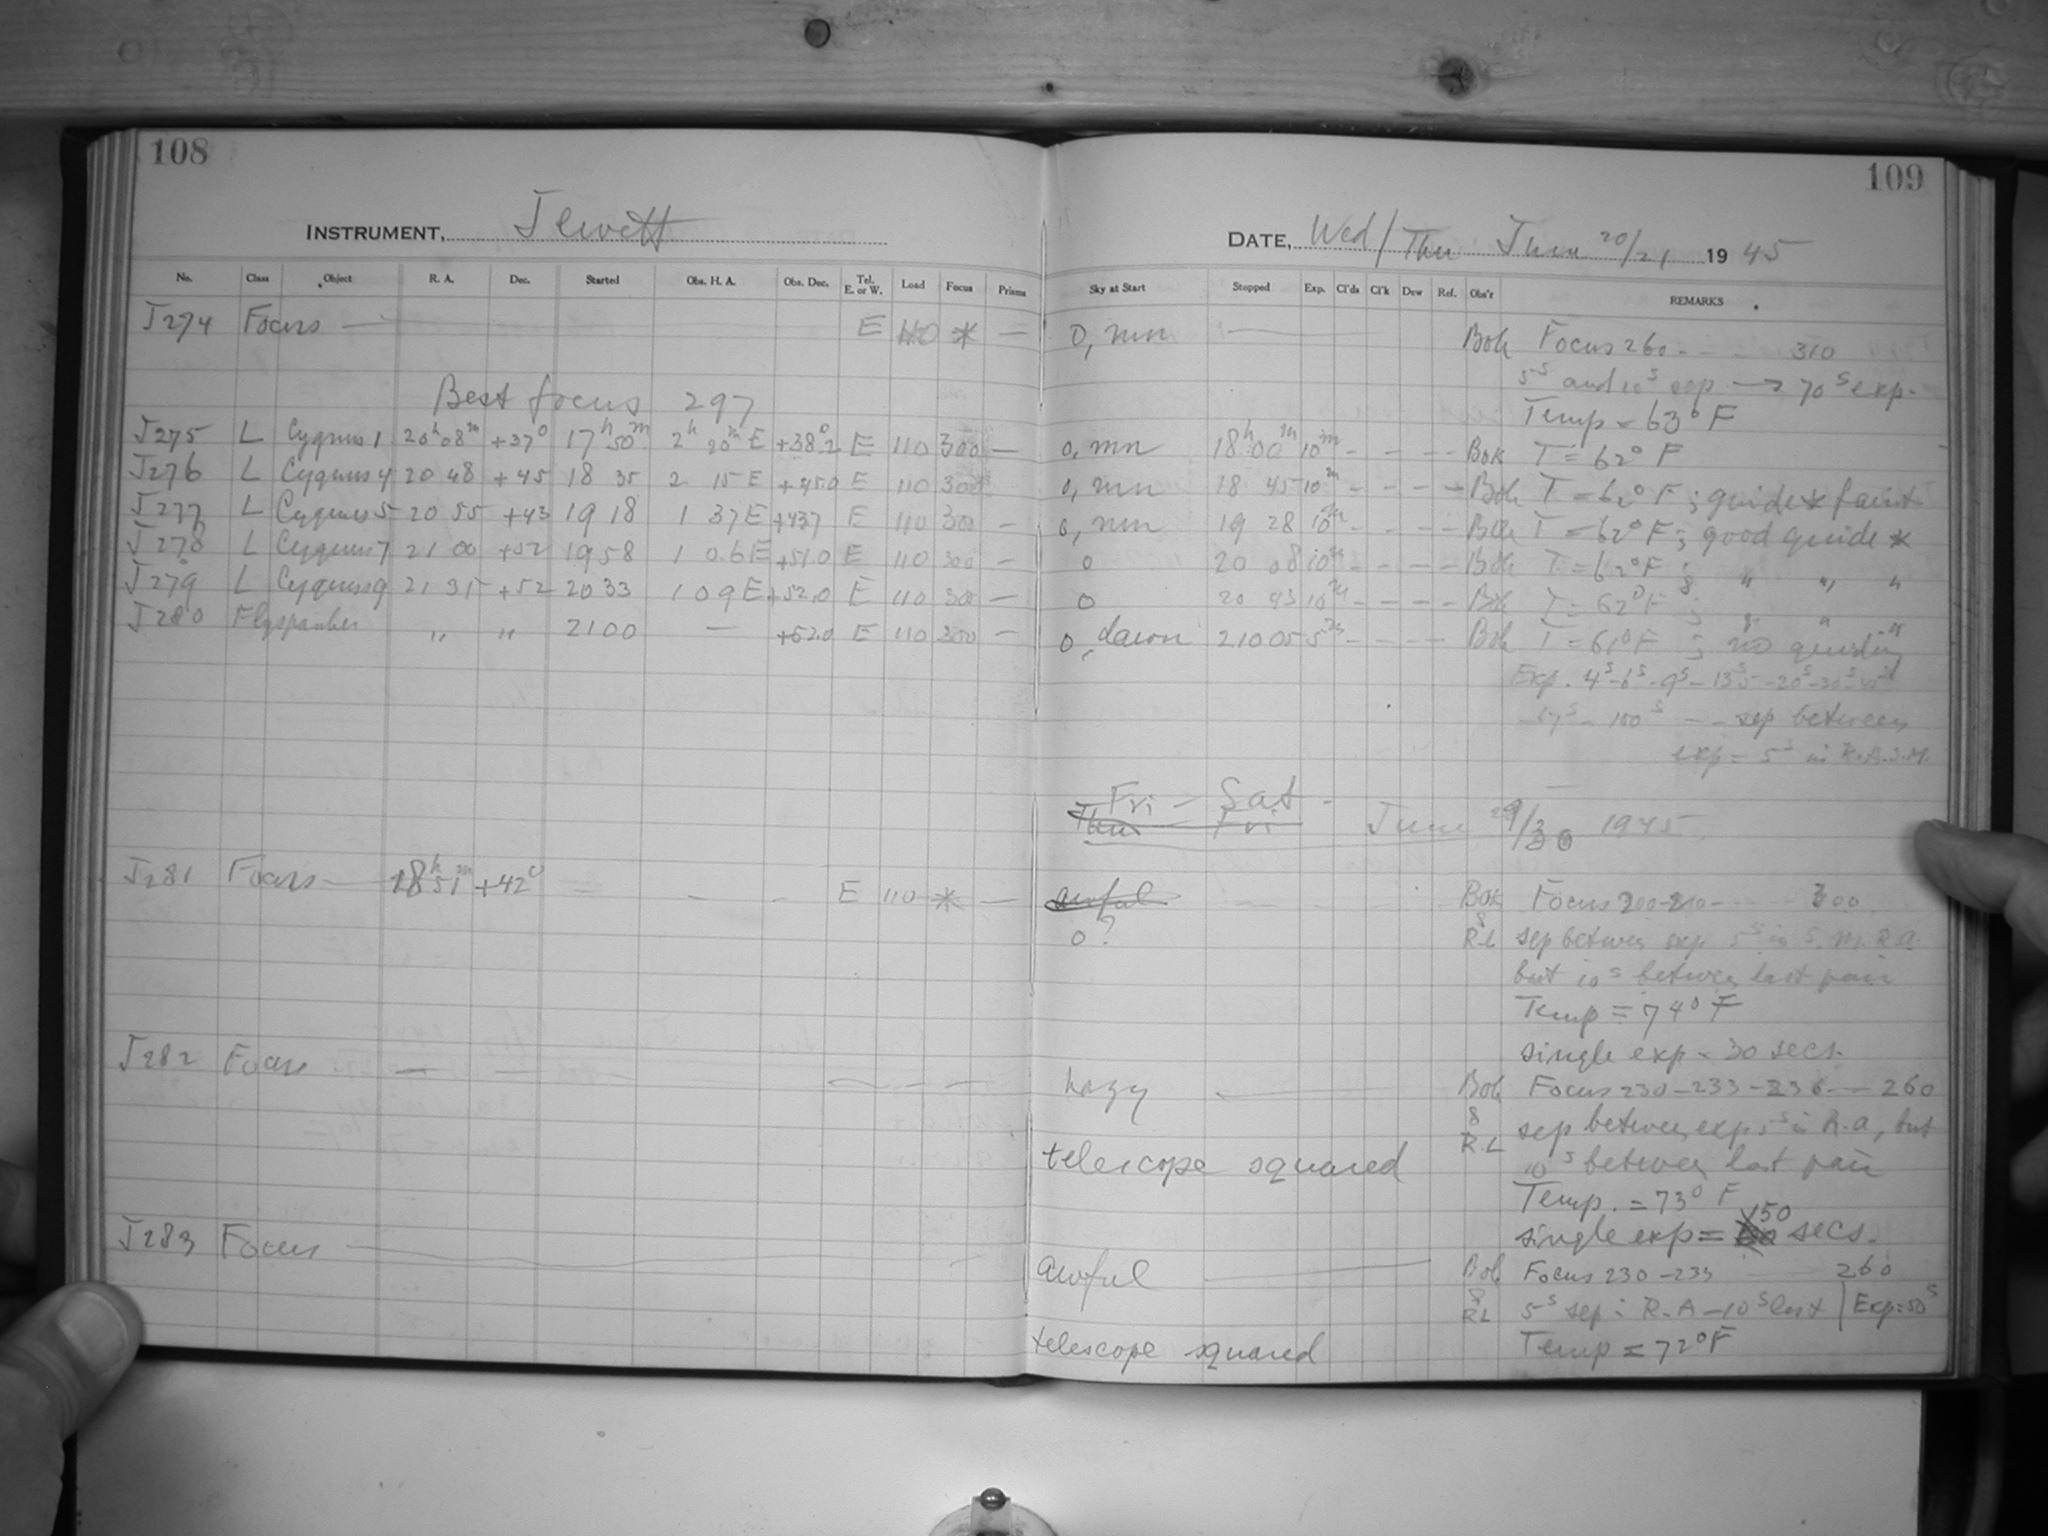 108
INSTRUMENT, Jewett
No. Class Object R. A. Dec. Started Obs. H. A. Obs. Dec. Tel. E. or W. Load Focus Prisms
J274 Focus — E 110 * —
Best focus 297
J275 L Cygnus 1 20h 08m +37° 17h 50m 2h 20m E +38°.2 E 110 300 —
J276 L Cygnus 4 20 48 +45 18 35 2 15 E +45.0 E 110 300
J277 L Cygnus 5 20 55 +43 19 18 1 37 E +43.7 E 110 300 —
J278 L Cygnus 7 21 00 +52 19 58 1 06 E +51.0 E 110 300 —
J279 L Cygnus 9 21 35 +52 20 33 1 09 E +52.0 E 110 300 —
J280 " " 2100 — +52.0 E 110 300 —
J281 Focus — 18h 51m +42° — — - E 110 * —
J282 Focus — —
J283 Focus —
109
DATE, Wed/Thu June 20/21 1945
Sky at Start Stopped Exp. Cl'ds Cl'k Dew Ref. Obs'r REMARKS
0, mn — Bok Focus 260 - - - 310
5s and 10s sep → 70s exp.
Temp = 63° F
0, mn 18h 00m 10m - - - - Bok T = 62° F
0, mn 18 45 10m - - - - Bok T = 62° F ; guide * faint
0, mn 19 28 10m - - - - Bok T = 62° F ; good guide *
0 20 08 10m - - - - Bok T = 62° F ; " " "
0 20 43 10m - - - - Bok T = 62° F ; " " "
0, dawn 21 05 5m - - - - Bok T = 61° F ; no guiding
Exp. 4s - 6s - 9s - 13s.5 - 20s - 30s - 45s
- 67s - 100s - - sep between
exp = 5s in R.A.S.M.
Fri - Sat
Thu - Fri June 29/30 1945
awful Bok Focus 200-210 - - - 300
0? & R.L sep between exp 5s in S.M. R.A.
but 10s between last pair
Temp = 74° F
single exp - 30 secs.
hazy — Bok Focus 230-233-236 - - 260
& R.L sep between exp 5s in R.A, but
telescope squared 10s between last pair
Temp. = 73° F
single exp = 50 secs.
awful — Bok Focus 230-233 260
& RL 5s sep in R.A - 10s last | Exp = 50s
telescope squared Temp = 72° F